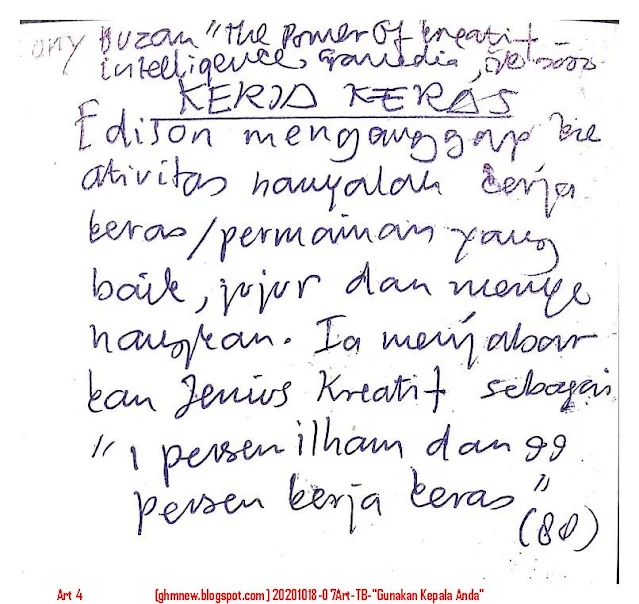 ony Buzan "The Power Of Kreatif
intelligence, Gramedia,
KERJA KERAS
Edison menganggap kre
ativitas hanyalah kerja
keras/permainan yang
baik, jujur dan menye
nangkan. Ia menjabar
kan Jenius Kreatif sebagai
"1 persen ilham dan 99
persen kerja keras"
(80)
Art 4 [ghmnew.blogspot.com] 20201018-07Art-TB-"Gunakan Kepala Anda"